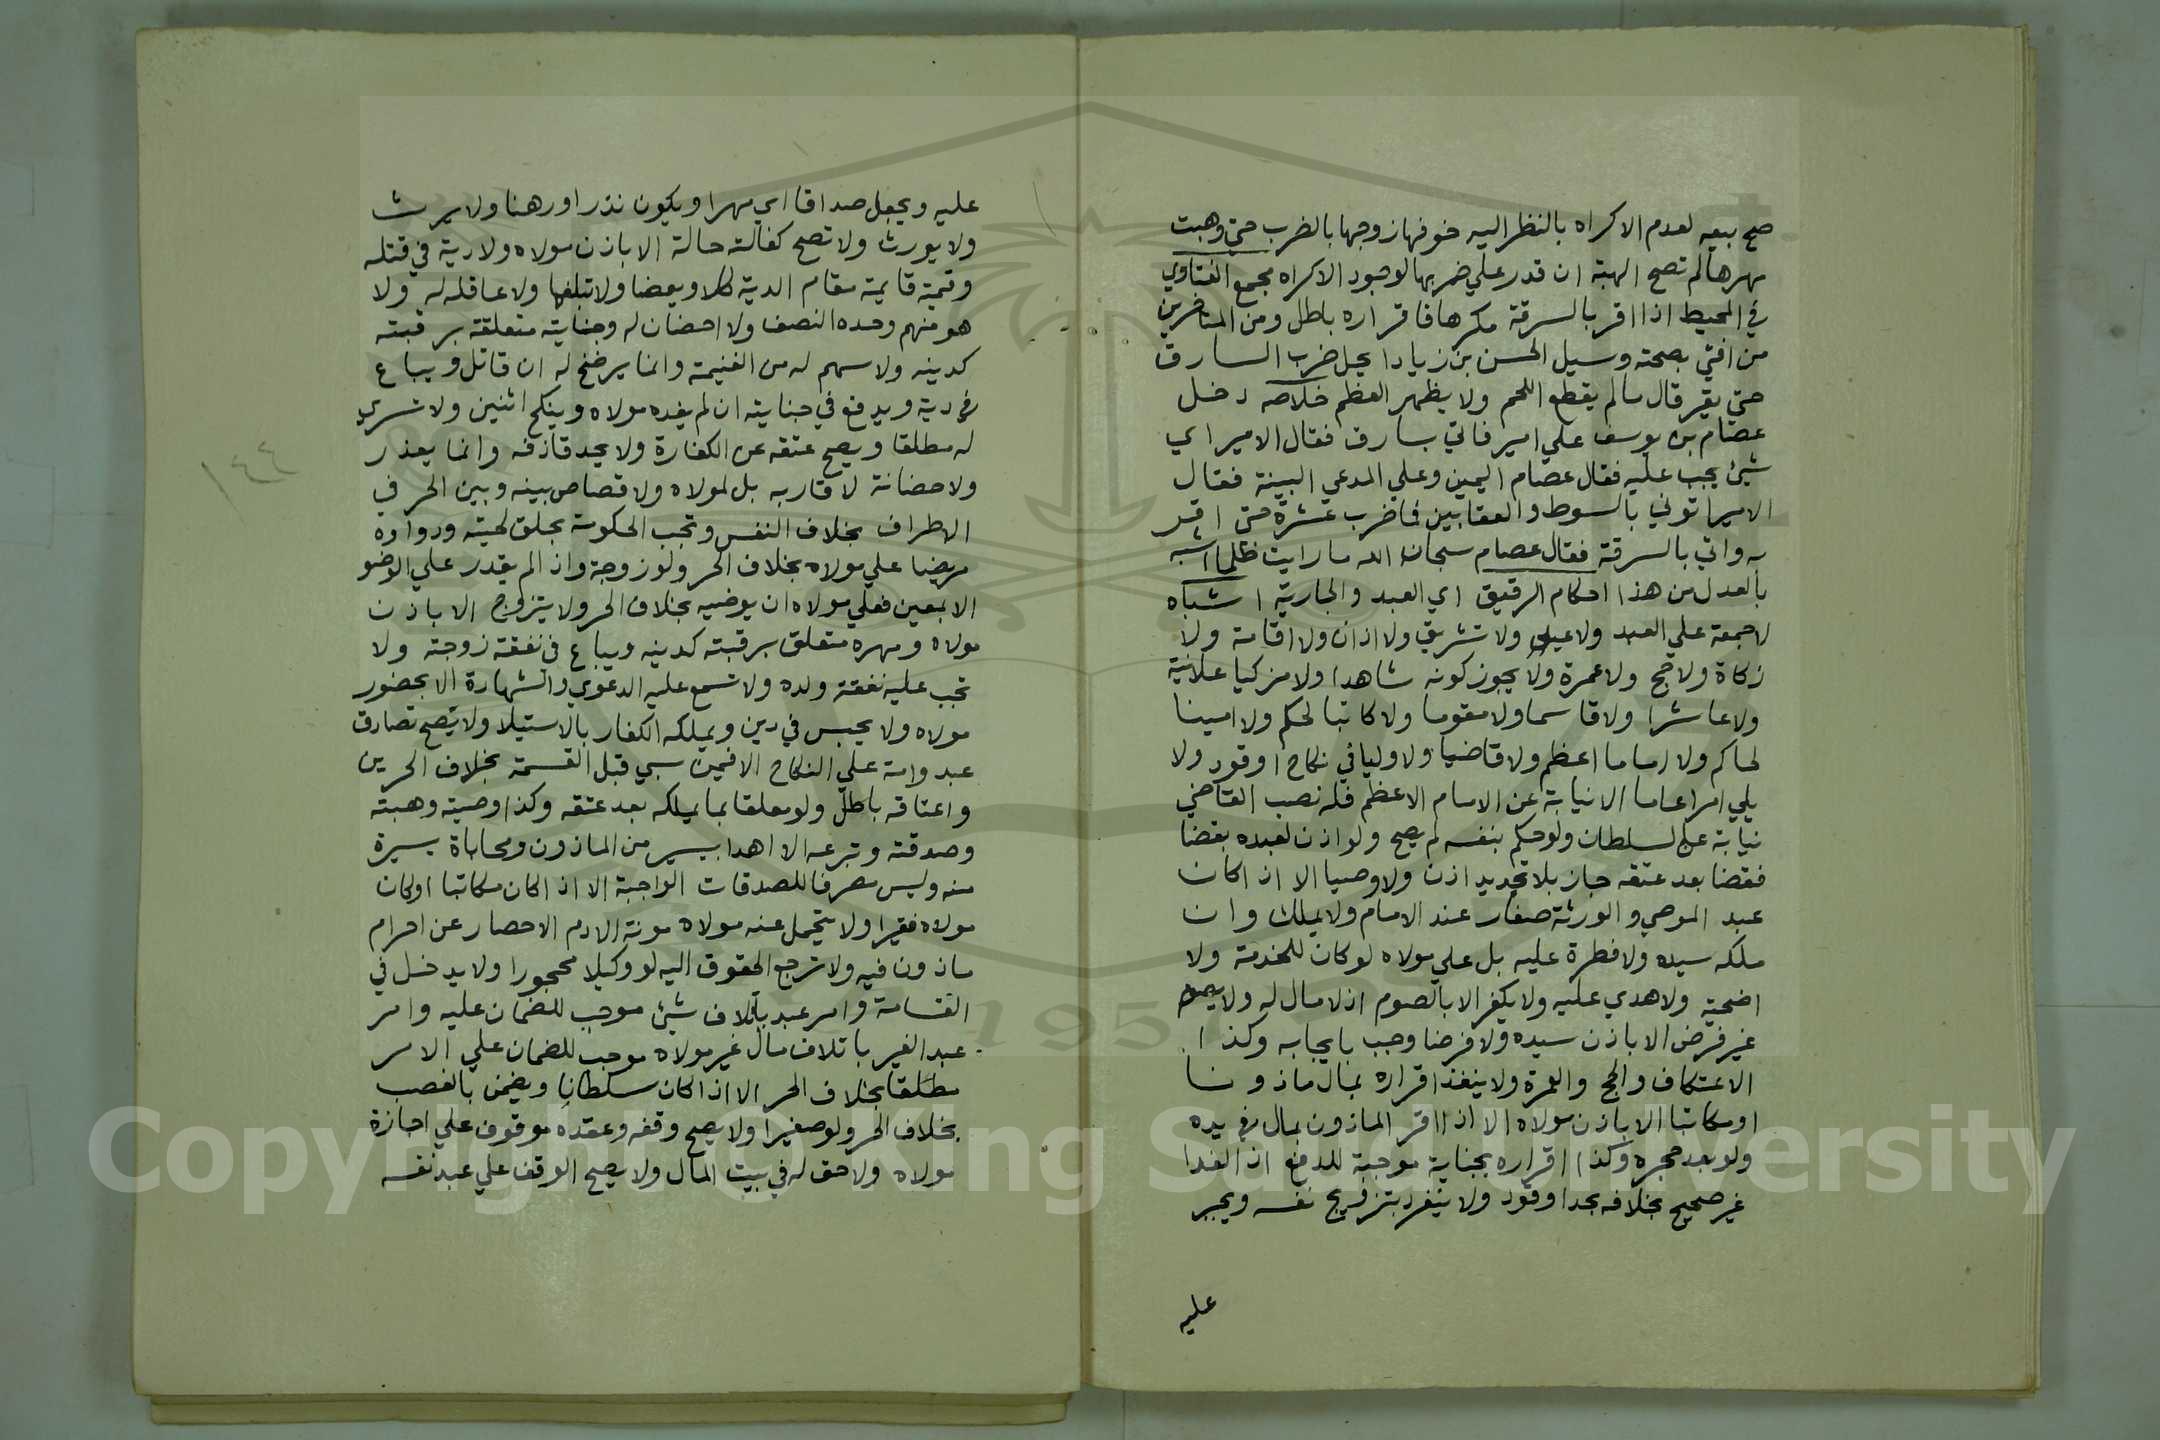 صح بيعه لعدم الاكراه بالنظر اليه خوفها زوجها بالضرب حتي وهبت
مهرها لم تصح الهبة ان قدر علي ضربها لوجود الاكراه مجمع الفتاوي
في المحيط اذا اقر بالسرقة مكرها فاقراره باطل ومن المتاخرين
من افتي بصحته وسيل الحسن بن زياد ايحل ضرب السارق
حتي يقر قال مالم يقطع اللحم ولا يظهر العظم خلاصه دخل
عصام بن يوسف علي امير فاتي بسارق فقال الامير اي
شيئ يجب عليه فقال عصام اليمين وعلي المدعي البينة فقال
الامير اتوني بالسوط والعقابين فاضرب عشرة حتي اقر
به واتي بالسرقة فقال عصام سبحان الله ما رايت ظلما اشبه
بالعدل من هذا احكام الرقيق اي العبد والجارية اشباه
لا جمعة علي العبد ولا عيد ولا تشريق ولا اذان ولا اقامة ولا
زكاة ولا حج ولا عمرة ولا يجوز كونه شاهدا ولا مزكيا علانية
ولا عاشرا ولا قاسما ولا مقوما ولا كاتبا لحكم ولا امينا
لحاكم ولا اماما اعظم ولا قاضيا ولا وليا في نكاح او قود ولا
يلي امرا عاما الا نيابة عن الامام الاعظم فله نصب القاضي
نيابة عن السلطان ولو حكم بنفسه لم يصح ولو اذن لعبده بقضا
فقضا بعد عتقه جاز بلا تجديد اذن ولا وصيا الا اذا كان
عبد الموصي والورثة صغار عند الامام ولا يملك وان
ملكه سيده ولا فطرة عليه بل علي مولاه لو كان للخدمة ولا
اضحية ولا هدي عليه ولا يكفر الا بالصوم اذ لا مال له ولا يصوم
غير فرض الا باذن سيده ولا فرضا وجب بايجابه وكذا
الاعتكاف والحج والعمرة ولا ينفذ اقراره بمال ماذونا
او مكاتبا الا باذن مولاه الا اذا اقر الماذون بمال في يده
ولو بعد حجره وكذا اقراره بجناية موجبة للدفع او الفدا
غير صحيح بخلافه بحد او قود ولا ينفرد بتزويج نفسه ويجبر
عليه
عليه ويجعل صداقا اي مهرا ويكون نذرا ورهنا ولا يرث
ولا يورث ولا تصح كفالته حالة الا باذن مولاه ولا دية في قتله
وقيمته قايمة مقام الدية كلا وبعضا ولا تبلغها ولا عاقله له ولا
هو منهم وحده النصف ولا احصان له وجنايته متعلقة برقبته
كدينه ولا سهم له من الغنيمة وانما يرضخ له ان قاتل ويباع
في دية ويدفع في جنايته ان لم يفده مولاه وينكح اثنين ولا تسري
له مطلقا ويصح عتقه عن الكفارة ولا يحد قاذفه وانما يعذر
ولا حضانة لاقاربه بل لمولاه ولا قصاص بينه وبين الحر في
الاطراف بخلاف النفس وتجب الحكومة بحلق لحيته ودواؤه
مريضا علي مولاه بخلاف الحر ولو زوجة واذا لم يقدر علي الوضو
الا بمعين فعلي مولاه ان يوضيه بخلاف الحر ولا يتزوج الا باذن
مولاه ومهره متعلق برقبته كدينه ويباع في نفقة زوجته ولا
تجب عليه نفقة ولده ولا تسمع عليه الدعوي والشهادة الا بحضور
مولاه ولا يحبس في دين ويملكه الكفار بالاستيلا ولا يصح تصادق
عبد وامة علي النكاح الا فيمن سبي قبل القسمة بخلاف الحرين
واعتاقه باطل ولو معلقا بما يملكه بعد عتقه وكذا وصيته وهبته
وصدقته وتبرعه الا اهدا يسير من الماذون ومحاباة يسيرة
منه وليس مصرفا للصدقات الواجبة الا اذا كان مكاتبا او كان
مولاه فقيرا ولا يتحمل عنه مولاه مونة الا دم الاحصار عن احرام
ماذون فيه ولا ترجع الحقوق اليه لو وكيلا محجورا ولا يدخل في
القسامة وامر عبد باتلاف شيئ موجب للضمان عليه وامر
عبد الغير باتلاف مال غير مولاه موجب للضمان علي الامر
مطلقا بخلاف الحر الا اذا كان سلطانا ويضمن بالغصب
بخلاف الحر ولو صغيرا ولا يصح وقفه وعقده موقوف علي اجازة
مولاه ولا حق له في بيت المال ولا يصح الوقف علي عبد نفسه
١٤٤
1957
Copyright © King Saud University